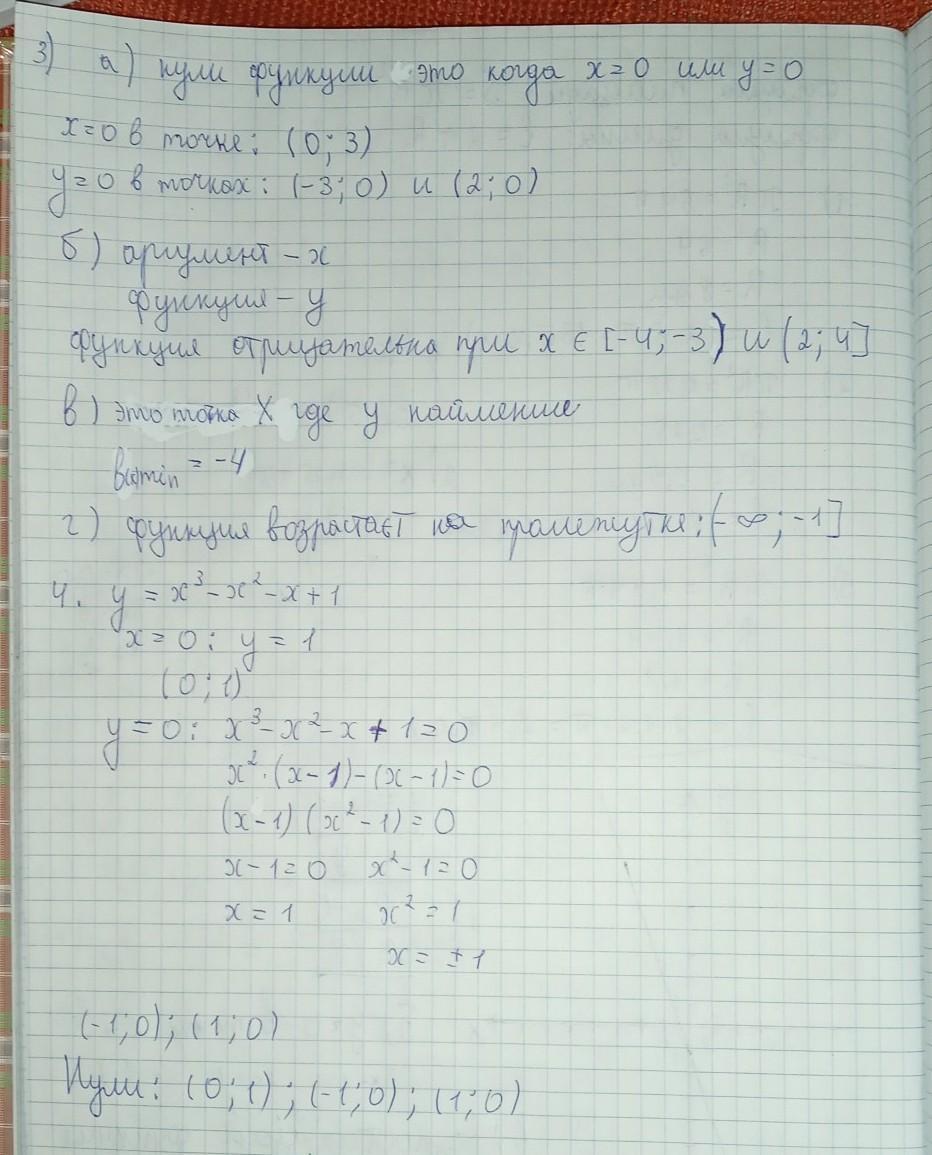 3) а) нули функции это когда x=0 или y=0
x=0 в точке: (0; 3)
y=0 в точках: (-3; 0) и (2; 0)
б) аргумент - x
функция - y
функция отрицательна при x ∈ [-4; -3) и (2; 4]
в) это точка X где y найменше
min = -4
г) функция возрастает на промежутке: (-∞; -1]
4. y = x³ - x² - x + 1
x = 0: y = 1
(0; 1)
y = 0: x³ - x² - x + 1 = 0
x² · (x - 1) - (x - 1) = 0
(x - 1) (x² - 1) = 0
x - 1 = 0 x² - 1 = 0
x = 1 x² = 1
x = ± 1
(-1; 0); (1; 0)
Нули: (0; 1); (-1; 0); (1; 0)